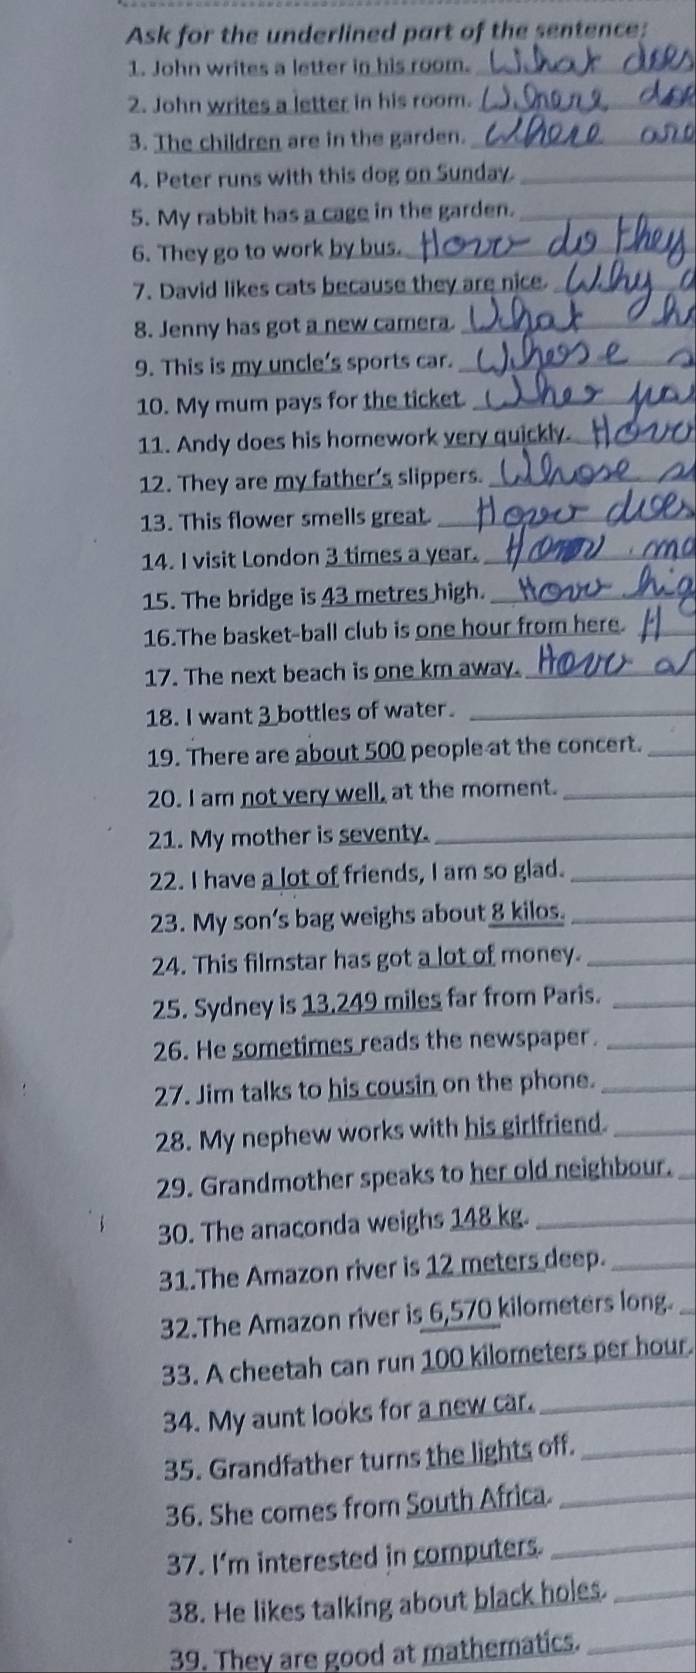 Ask for the underlined part of the sentence:
1. John writes a letter in his room. What does
2. John writes a letter in his room. Where doe
3. The children are in the garden. Where are
4. Peter runs with this dog on Sunday.
5. My rabbit has a cage in the garden.
6. They go to work by bus. How do they
7. David likes cats because they are nice. Why d
8. Jenny has got a new camera. What h
9. This is my uncle's sports car. Whose
10. My mum pays for the ticket.
11. Andy does his homework very quickly. How
12. They are my father's slippers. Whose
13. This flower smells great. How does
14. I visit London 3 times a year. How ma
15. The bridge is 43 metres high. How hig
16.The basket-ball club is one hour from here. H
17. The next beach is one km away. How
18. I want 3 bottles of water.
19. There are about 500 people at the concert.
20. I am not very well, at the moment.
21. My mother is seventy.
22. I have a lot of friends, I am so glad.
23. My son's bag weighs about 8 kilos.
24. This filmstar has got a lot of money.
25. Sydney is 13,249 miles far from Paris.
26. He sometimes reads the newspaper.
27. Jim talks to his cousin on the phone.
28. My nephew works with his girlfriend.
29. Grandmother speaks to her old neighbour.
30. The anaconda weighs 148 kg.
31.The Amazon river is 12 meters deep.
32.The Amazon river is 6,570 kilometers long.
33. A cheetah can run 100 kilometers per hour.
34. My aunt looks for a new car.
35. Grandfather turns the lights off.
36. She comes from South Africa.
37. I'm interested in computers.
38. He likes talking about black holes.
39. They are good at mathematics.